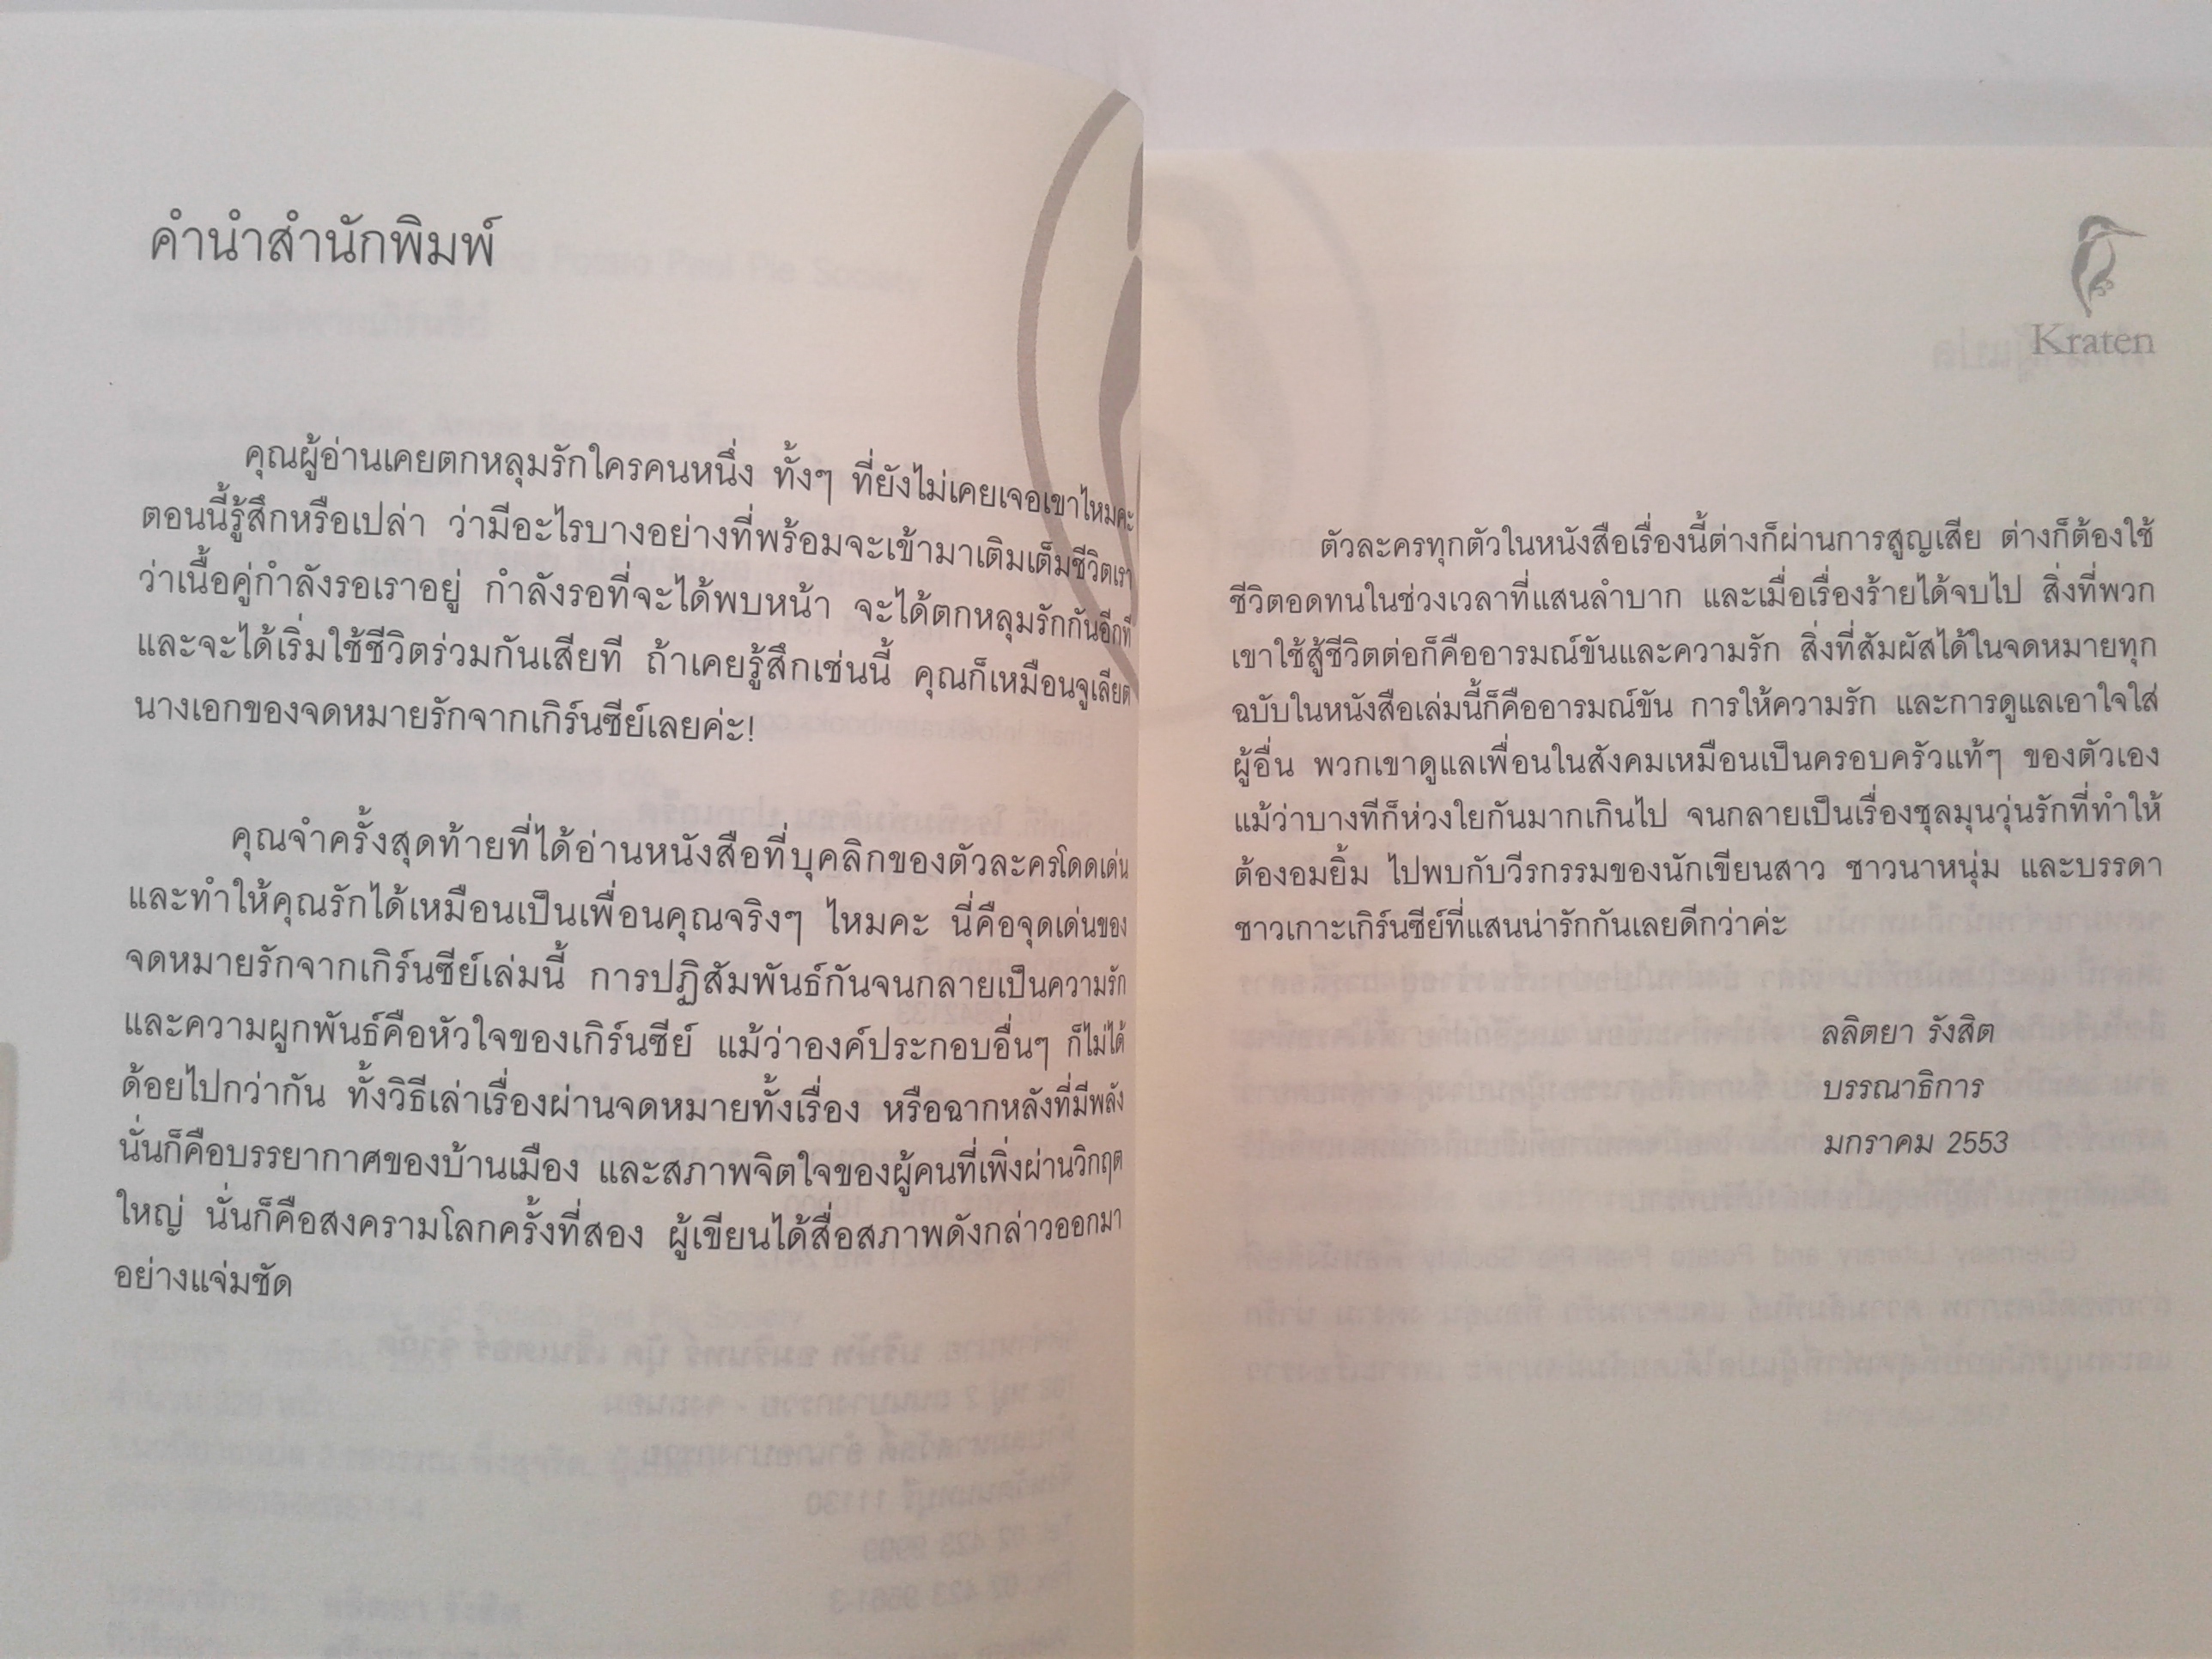 คำนำสำนักพิมพ์
คุณผู้อ่านเคยตกหลุมรักใครคนหนึ่ง ทั้งๆ ที่ยังไม่เคยเจอเขาไหมคะ
ตอนนี้รู้สึกหรือเปล่า ว่ามีอะไรบางอย่างที่พร้อมจะเข้ามาเติมเต็มชีวิตเรา
ว่าเนื้อคู่กำลังรอเราอยู่ กำลังรอที่จะได้พบหน้า จะได้ตกหลุมรักกันอีกที
และจะได้เริ่มใช้ชีวิตร่วมกันเสียที ถ้าเคยรู้สึกเช่นนี้ คุณก็เหมือนจูเลียต
นางเอกของจดหมายรักจากเกิร์นซีย์เลยค่ะ!
คุณจำครั้งสุดท้ายที่ได้อ่านหนังสือที่บุคลิกของตัวละครโดดเด่น
และทำให้คุณรักได้เหมือนเป็นเพื่อนคุณจริงๆ ไหมคะ นี่คือจุดเด่นของ
จดหมายรักจากเกิร์นซีย์เล่มนี้ การปฏิสัมพันธ์กันจนกลายเป็นความรัก
และความผูกพันธ์คือหัวใจของเกิร์นซีย์ แม้ว่าองค์ประกอบอื่นๆ ก็ไม่ได้
ด้อยไปกว่ากัน ทั้งวิธีเล่าเรื่องผ่านจดหมายทั้งเรื่อง หรือฉากหลังที่มีพลัง
นั่นก็คือบรรยากาศของบ้านเมือง และสภาพจิตใจของผู้คนที่เพิ่งผ่านวิกฤต
ใหญ่ นั่นก็คือสงครามโลกครั้งที่สอง ผู้เขียนได้สื่อสภาพดังกล่าวออกมา
อย่างแจ่มชัด
Kraten
ตัวละครทุกตัวในหนังสือเรื่องนี้ต่างก็ผ่านการสูญเสีย ต่างก็ต้องใช้
ชีวิตอดทนในช่วงเวลาที่แสนลำบาก และเมื่อเรื่องร้ายได้จบไป สิ่งที่พวก
เขาใช้สู้ชีวิตต่อก็คืออารมณ์ขันและความรัก สิ่งที่สัมผัสได้ในจดหมายทุก
ฉบับในหนังสือเล่มนี้ก็คืออารมณ์ขัน การให้ความรัก และการดูแลเอาใจใส่
ผู้อื่น พวกเขาดูแลเพื่อนในสังคมเหมือนเป็นครอบครัวแท้ๆ ของตัวเอง
แม้ว่าบางทีก็ห่วงใยกันมากเกินไป จนกลายเป็นเรื่องชุลมุนวุ่นรักที่ทำให้
ต้องอมยิ้ม ไปพบกับวีรกรรมของนักเขียนสาว ชาวนาหนุ่ม และบรรดา
ชาวเกาะเกิร์นซีย์ที่แสนน่ารักกันเลยดีกว่าค่ะ
ลลิตยา รังสิต
บรรณาธิการ
มกราคม 2553